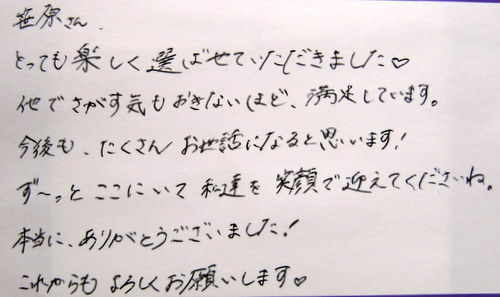 笹原さん、
とっても楽しく選ばせていただきました♡
他でさがす気もおきないほど、満足しています。
今後も、たくさんお世話になると思います!
ず〜っとここにいて私達を笑顔で迎えてくださいね。
本当に、ありがとうございました!
これからもよろしくお願いします♡